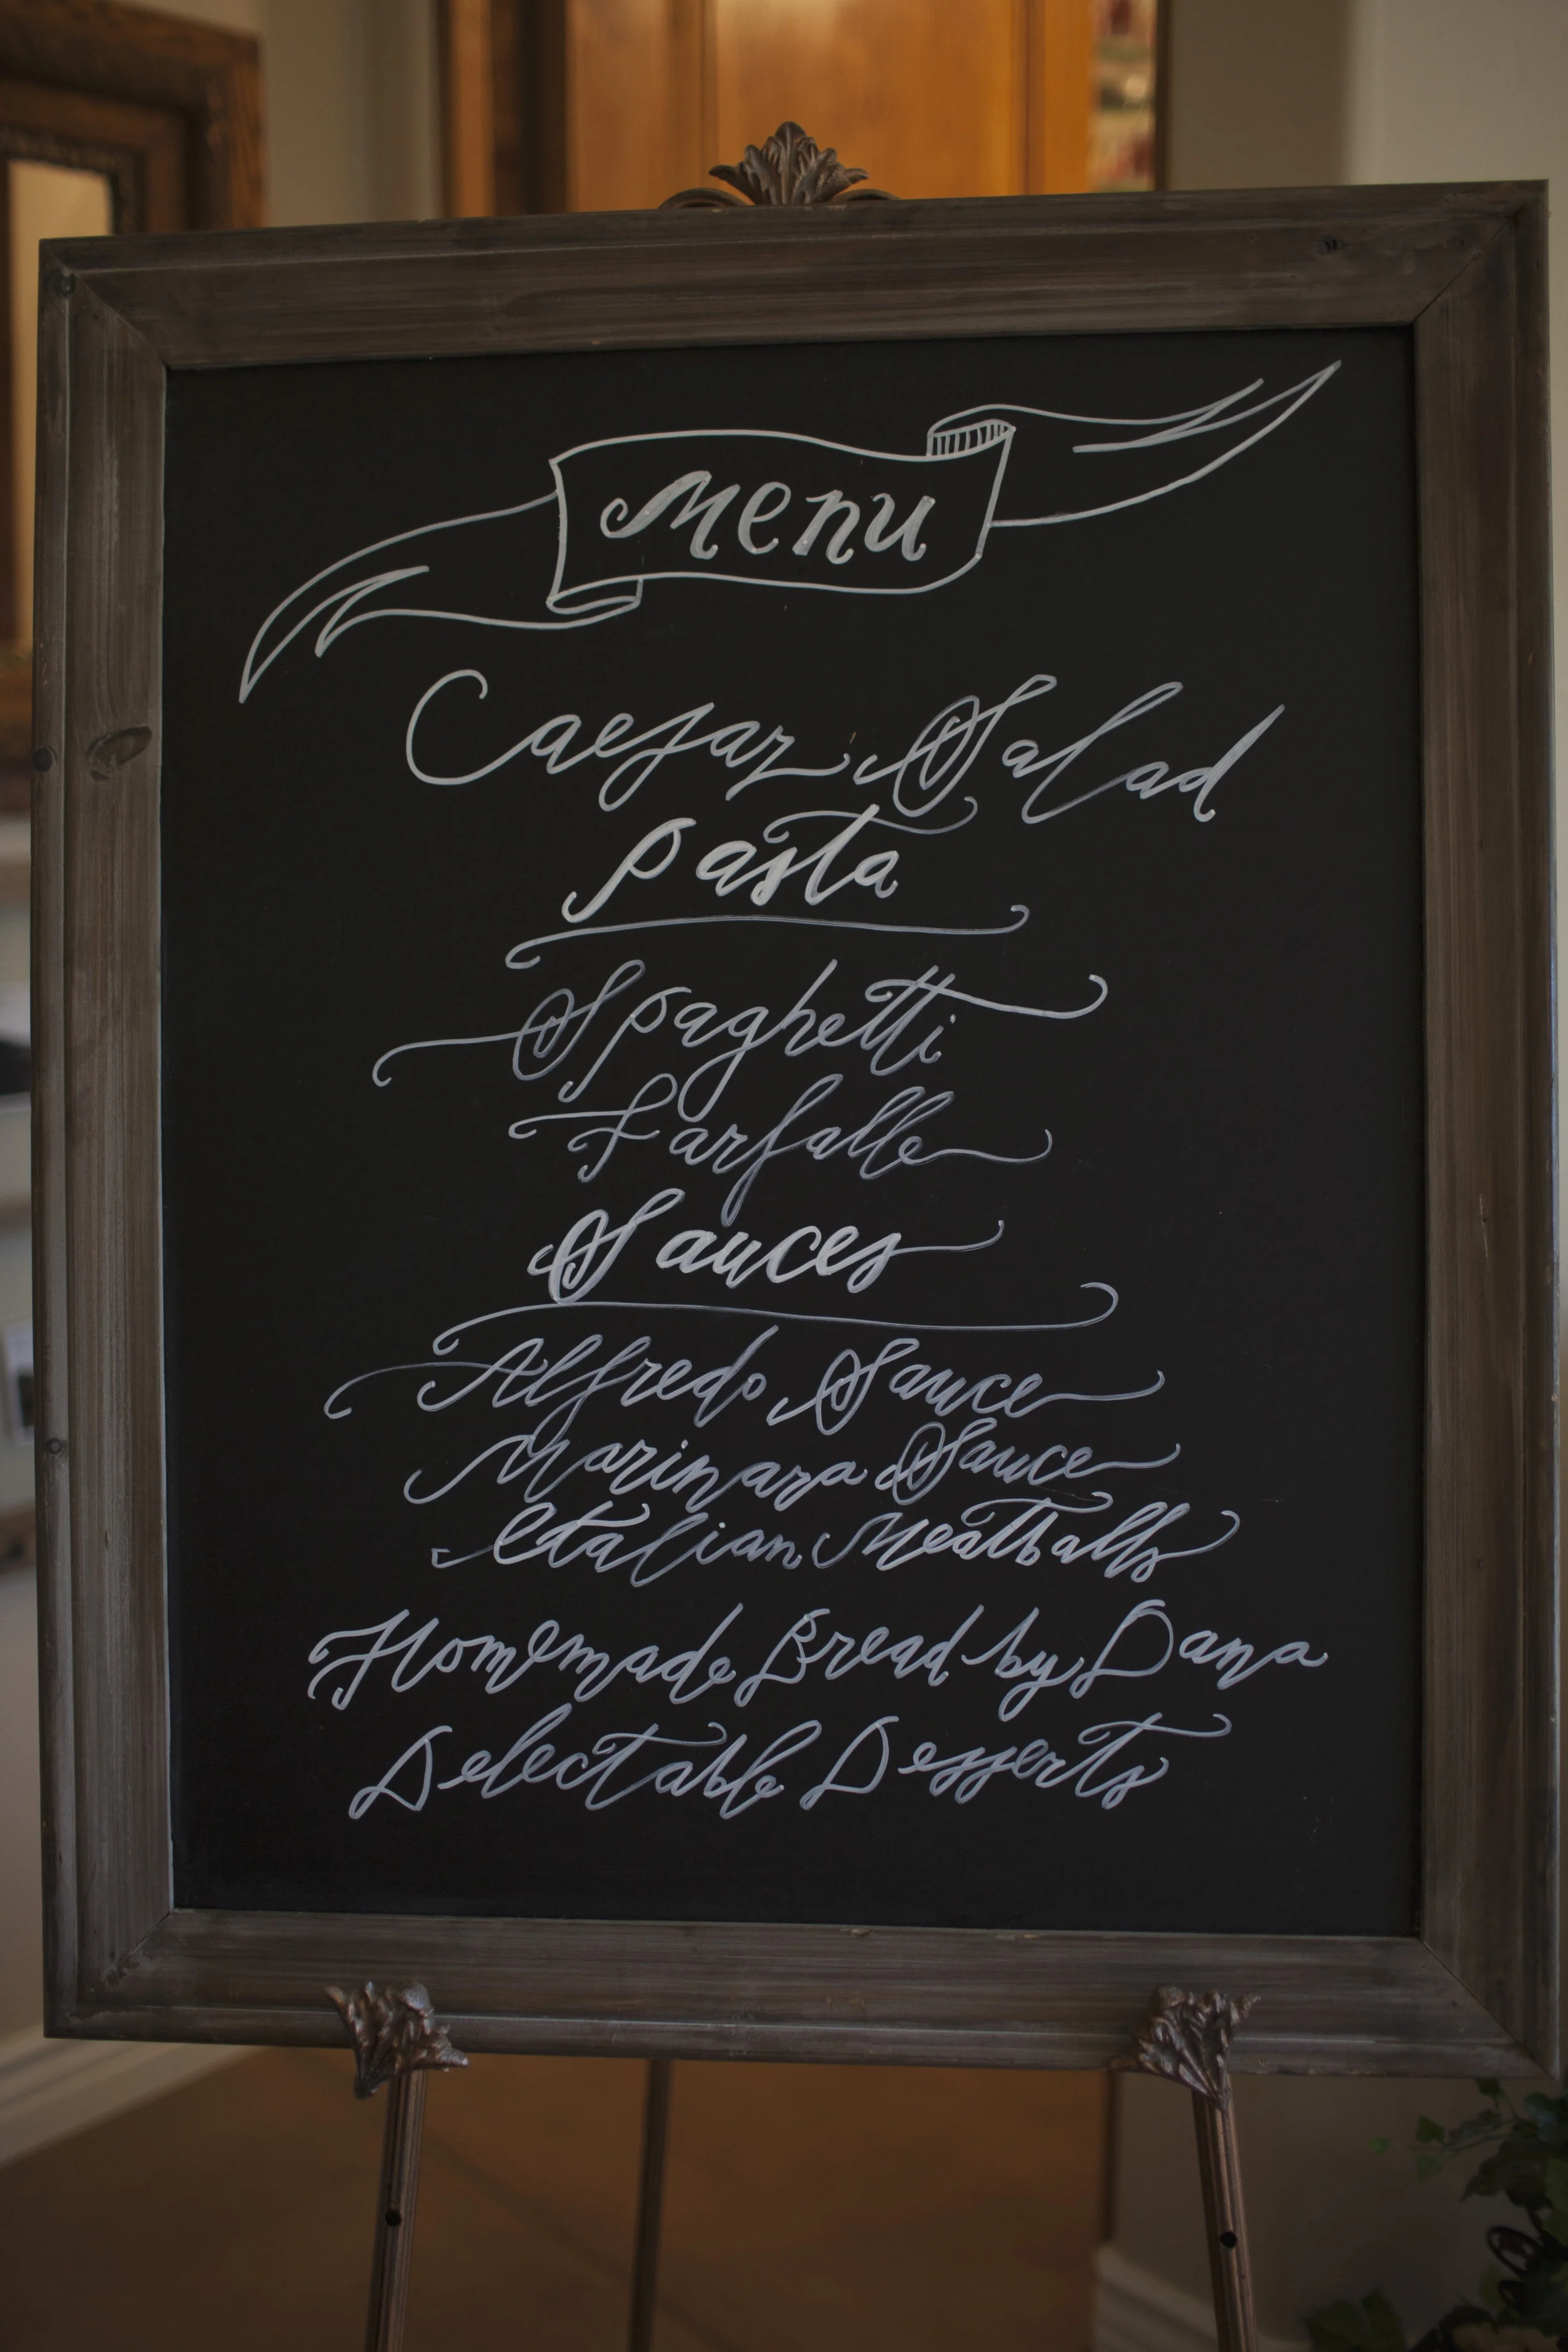 Menu
Caesar Salad
Pasta
Spaghetti
Farfalle
Sauces
Alfredo Sauce
Marinara Sauce
Italian Meatballs
Homemade Bread by Dana
Delectable Desserts